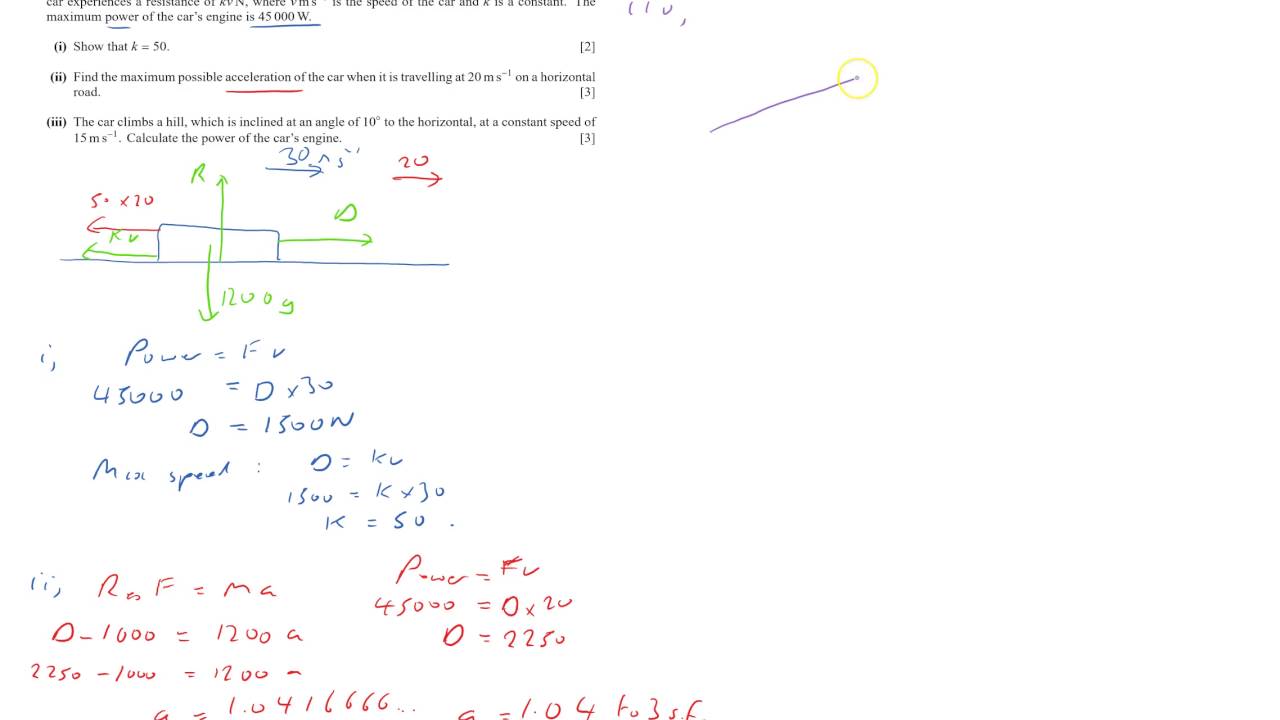 car experiences a resistance of kv N, where v m s⁻¹ is the speed of the car and k is a constant. The
maximum power of the car's engine is 45 000 W.
(i) Show that k = 50. [2]
(ii) Find the maximum possible acceleration of the car when it is travelling at 20 m s⁻¹ on a horizontal
road. [3]
(iii) The car climbs a hill, which is inclined at an angle of 10° to the horizontal, at a constant speed of
15 m s⁻¹. Calculate the power of the car's engine. [3]
30 m s⁻¹
20
R
50 × 20
D
kv
1200g
i, Power = Fv
45000 = D × 30
D = 1500N
Max speed : D = kv
1500 = K × 30
K = 50 .
ii, Res F = ma
D - 1000 = 1200 a
2250 - 1000 = 1200
a = 1.0416666...
Power = Fv
45000 = D × 20
D = 2250
a = 1.04 to 3 s.f.